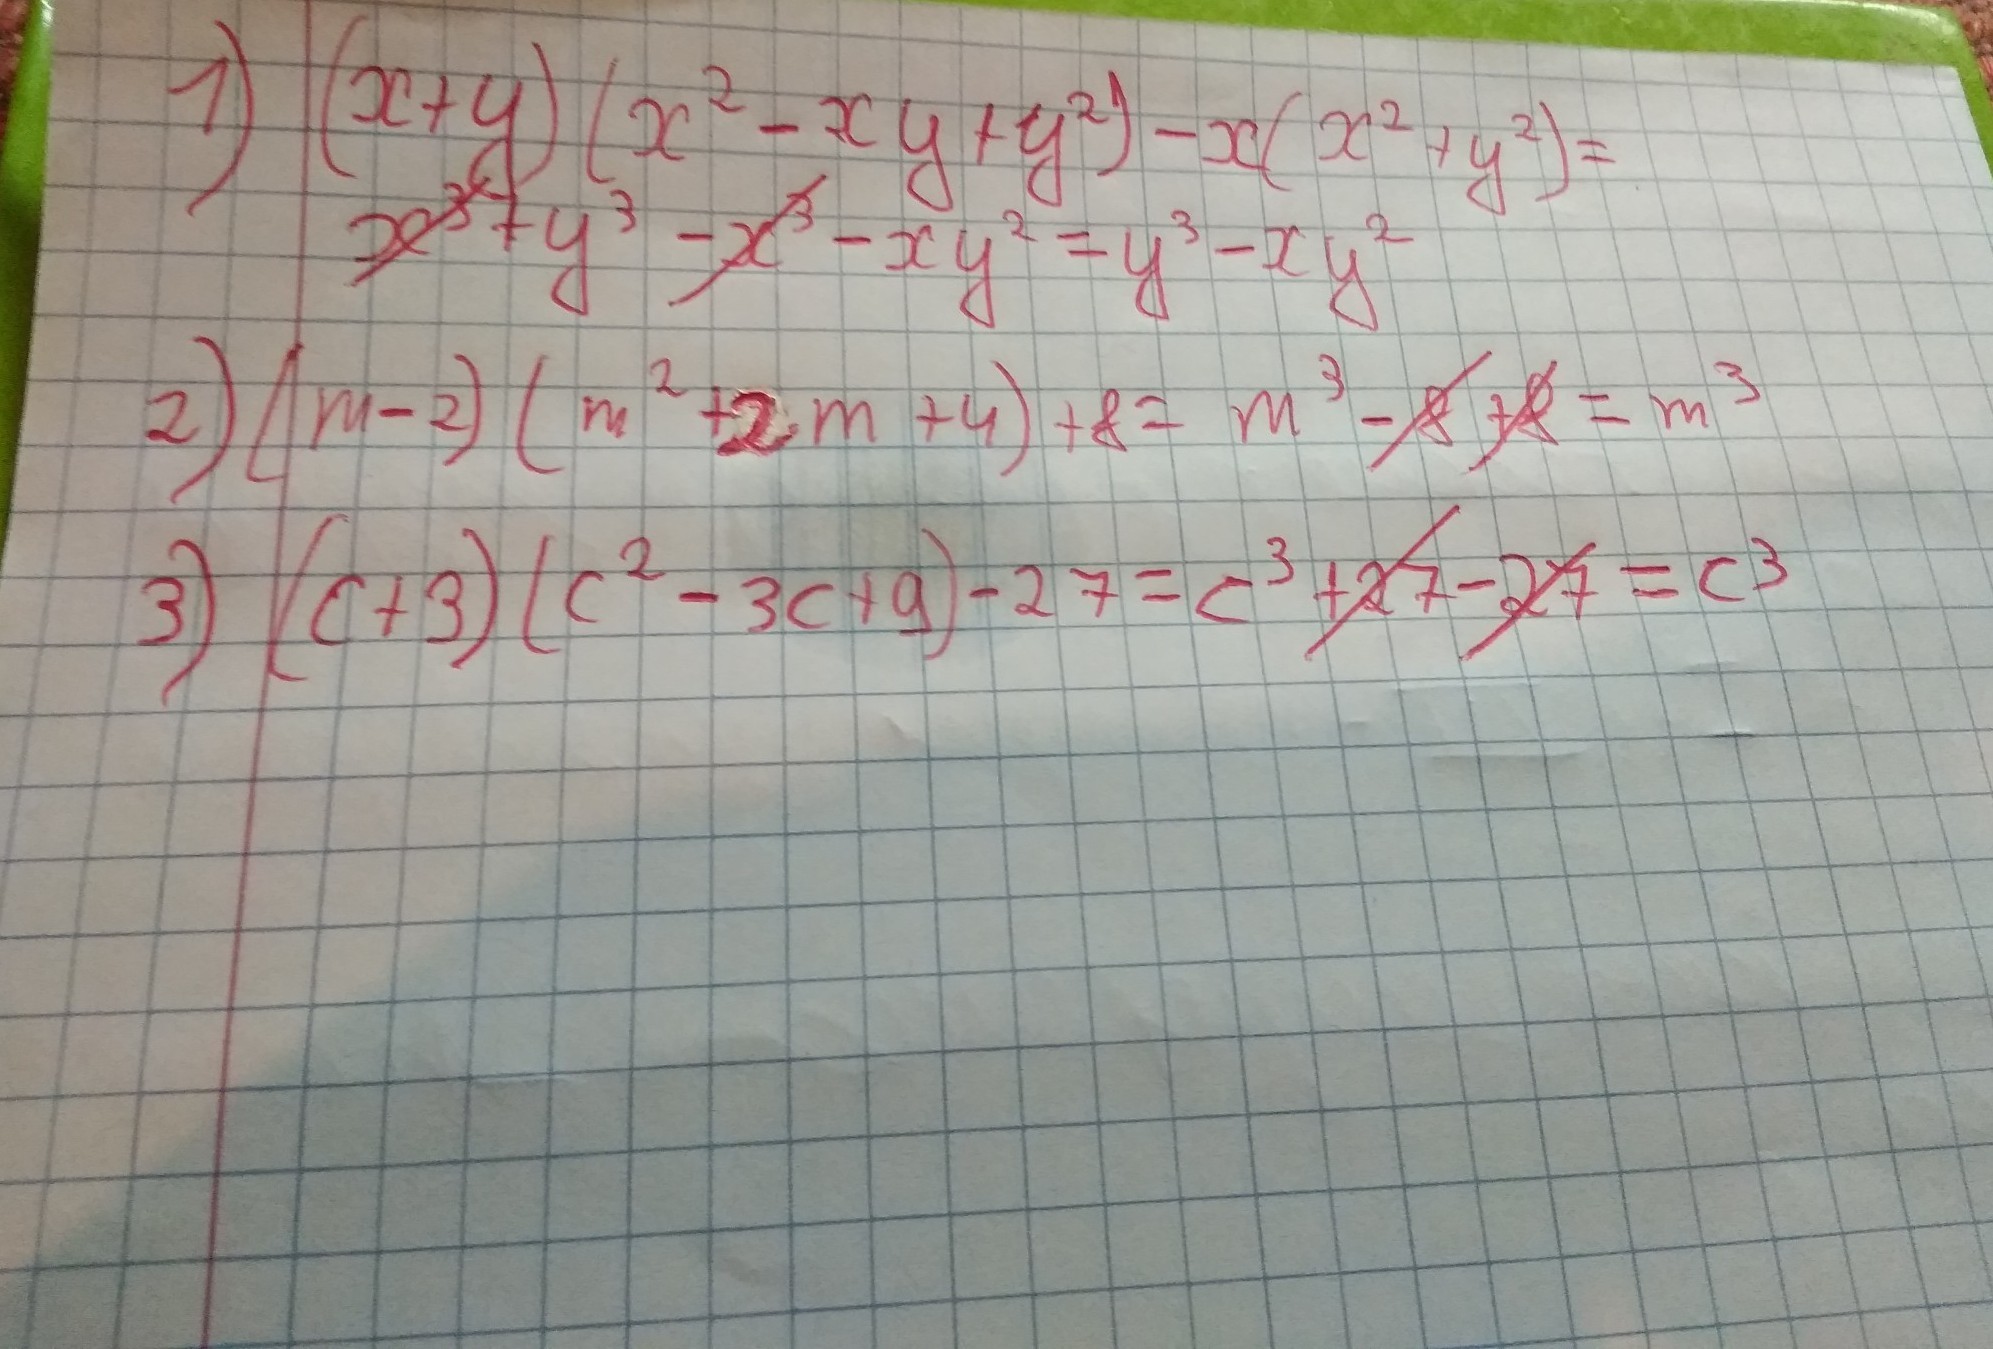 1) (x+y)(x²-xy+y²)-x(x²+y²)=
x³+y³-x³-xy²=y³-xy²
2) (m-2)(m²+2m+4)+8=m³-8+8=m³
3) (c+3)(c²-3c+9)-27=c³+27-27=c³